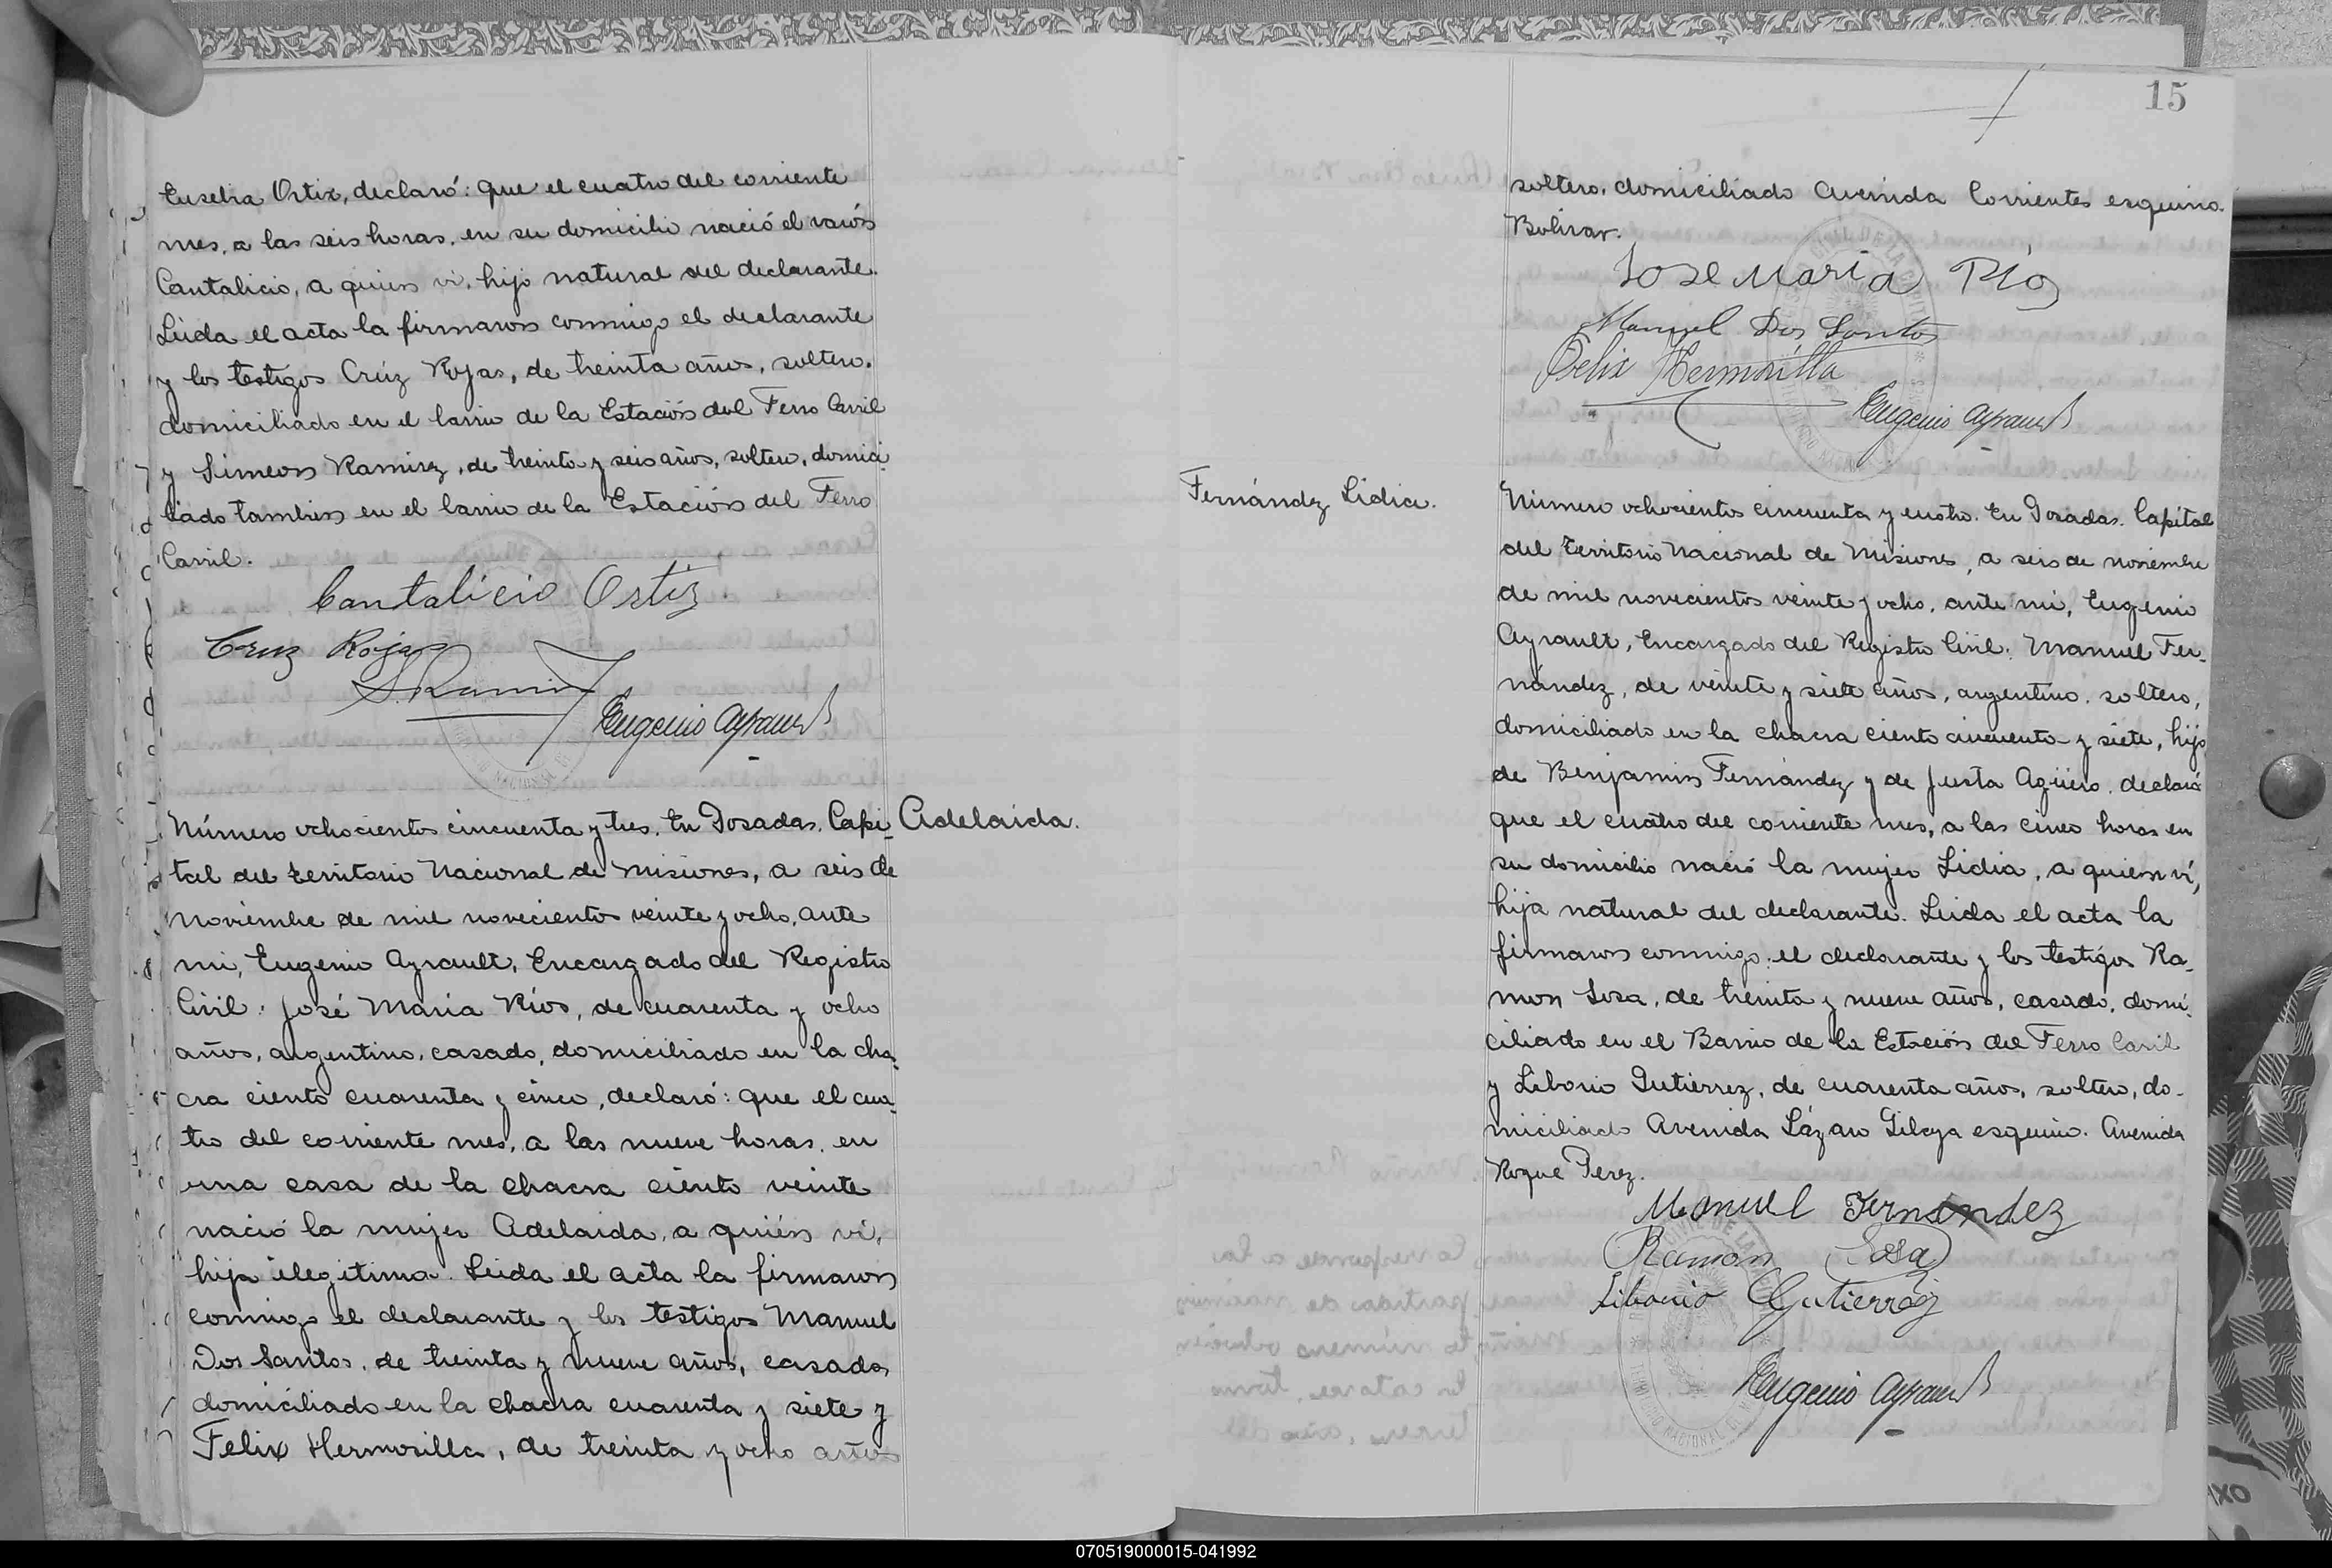 Eusebia Ortiz, declaró: que el cuatro del corriente
mes, a las seis horas, en su domicilio nació el varón
Cantalicio, a quien vi, hijo natural del declarante.
Leida el acta la firmaron conmigo el declarante
y los testigos Crúz Rojas, de treinta años, soltero,
domiciliado en el barrio de la Estación del Ferro Carril
y Simeon Ramirez, de treinta y seis años, soltero, domici
liado tambien en el barrio de la Estación del Ferro
Carril.
Cantalicio Ortiz
Cruz Rojas
S. Ramirez
Eugenio Ayrault
Adelaida.
Número ochocientos cincuenta y tres. En Posadas, Capi-
tal del territorio Nacional de Misiones, a seis de
noviembre de mil novecientos veinte y ocho, ante
mi, Eugenio Ayrault, Encargado del Registro
Civil: José María Ríos, de cuarenta y ocho
años, argentino, casado, domiciliado en la cha-
cra ciento cuarenta y cinco, declaró: que el cua-
tro del corriente mes, a las nueve horas, en
una casa de la chacra ciento veinte
nació la mujer Adelaida, a quién ví,
hija ilegitima. Leida el acta la firmaron
conmigo el declarante y los testigos Manuel
Dos Santos, de treinta y nueve años, casado,
domiciliado en la chacra cuarenta y siete y
Felix Hermosilla, de treinta y ocho años
15
soltero, domiciliado Avenida Corrientes esquina
Bolivar.
Jose Maria Rios
Manuel Dos Santos
Felix Hermosilla
Eugenio Ayrault
Fernández Lidia.
Número ochocientos cincuenta y cuatro. En Posadas, Capital
del territorio Nacional de Misiones, a seis de noviembre
de mil novecientos veinte y ocho, ante mi, Eugenio
Ayrault, Encargado del Registro Civil: Manuel Fer-
nández, de veinte y siete años, argentino, soltero,
domiciliado en la chacra ciento cincuenta y siete, hijo
de Benjamin Fernández y de Justa Agüero, declaró
que el cuatro del corriente mes, a las cinco horas en
su domicilio nació la mujer Lidia, a quien ví,
hija natural del declarante. Leida el acta la
firmaron conmigo: el declarante y los testigos Ra-
mon Sosa, de treinta y nueve años, casado, domi-
ciliado en el Barrio de la Estación del Ferro Carril
y Liborio Gutiérrez, de cuarenta años, soltero, do-
miciliado Avenida Lázaro Gibaja esquina Avenida
Roque Perez.
Manuel Fernandez
Ramon Sosa
Liborio Gutierrez
Eugenio Ayrault
070519000015-041992